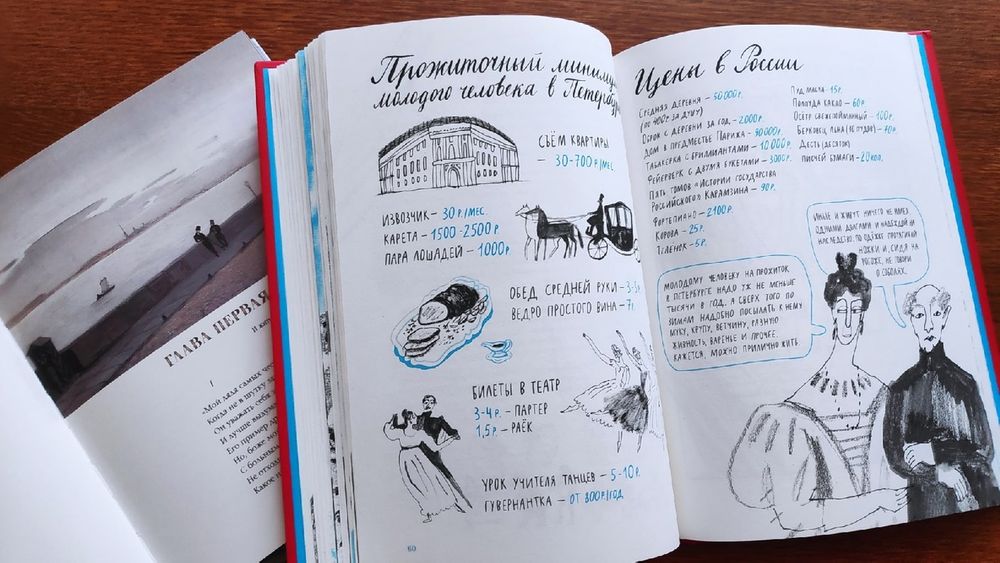 ГЛАВА ПЕРВАЯ
I
«Мой дядя самых чес
Когда не в шутку за
Он уважать себя
И лучше выдум
Его пример др
Но, боже мо
С больным
Не отход
Какое
Прожиточный миниму
молодого человека в Петербур
СЪЁМ КВАРТИРЫ
– 30-700 Р./МЕС
ИЗВОЗЧИК – 30 Р./МЕС.
КАРЕТА – 1500-2500 Р.
ПАРА ЛОШАДЕЙ – 1000 Р.
ОБЕД СРЕДНЕЙ РУКИ – 3-
ВЕДРО ПРОСТОГО ВИНА – 7
БИЛЕТЫ В ТЕАТР
3-4 Р. – ПАРТЕР
1,5 Р. – РАЁК
УРОК УЧИТЕЛЯ ТАНЦЕВ – 5-10 Р.
ГУВЕРНАНТКА – ОТ 800 Р./ГОД
60
Цены в России
СРЕДНЯЯ ДЕРЕВНЯ – 50000 Р.
(ПО 400 Р. ЗА ДУШУ)
ОБРОК С ДЕРЕВНИ ЗА ГОД – 2000 Р.
ДОМ В ПРЕДМЕСТЬЕ ПАРИЖА – 90000 Р.
ТАБАКЕРКА С БРИЛЛИАНТАМИ – 10000 Р.
ФЕЙЕРВЕРК С ДВУМЯ БУКЕТАМИ – 3000 Р.
ПЯТЬ ТОМОВ «ИСТОРИИ ГОСУДАРСТВА
РОССИЙСКОГО» КАРАМЗИНА – 90 Р.
ФОРТЕПИАНО – 2100 Р.
КОРОВА – 25 Р.
ТЕЛЕНОК – 5 Р.
ПУД МАСЛА – 15 Р.
ПОЛПУДА КАКАО – 60 Р.
ОСЁТР СВЕЖЕПОЙМАННЫЙ – 100 Р.
БЕРКОВЕЦ ЛЬНА (10 ПУДОВ) – 40 Р.
ДЕСТЬ (ДЕСЯТОК)
ПИСЧЕЙ БУМАГИ – 20 КОП.
МОЛОДОМУ ЧЕЛОВЕКУ НА ПРОЖИТОК
В ПЕТЕРБУРГЕ НАДО УЖ НЕ МЕНЬШЕ
ТЫСЯЧИ В ГОД, А СВЕРХ ТОГО ПО
ЗИМАМ НАДОБНО ПОСЫЛАТЬ К НЕМУ
МУКУ, КРУПУ, ВЕТЧИНУ, РАЗНУЮ
ЖИВНОСТЬ, ВАРЕНЬЕ И ПРОЧЕЕ.
КАЖЕТСЯ, МОЖНО ПРИЛИЧНО ЖИТЬ
ИНЫЕ И ЖИВУТ НИЧЕГО НЕ ИМЕЯ,
ОДНИМИ ДОЛГАМИ И НАДЕЖДОЙ НА
НАСЛЕДСТВО. ПО ОДЕЖКЕ ПРОТЯГИВАЙ
НОЖКИ И, СИДЯ НА
РОГОЖЕ, НЕ ГОВОРИ
О СОБОЛЯХ.